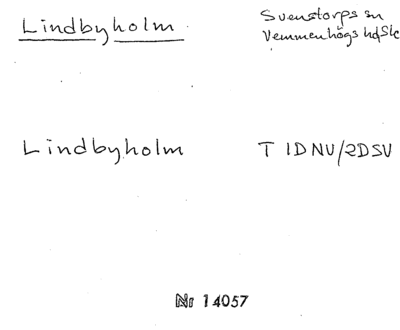 Lindbyholm
Svenstorps sn
Vemmenhögs hd Sk
Lindbyholm
T 1D NV/2D SV
Nr 14057